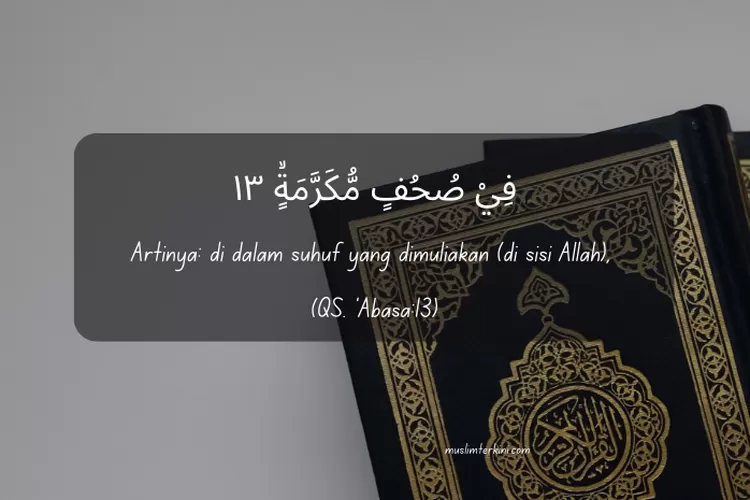 فِيْ صُحُفٍ مُّكَرَّمَةٍۙ ١٣
Artinya: di dalam suhuf yang dimuliakan (di sisi Allah),
(QS. 'Abasa:13)
القرآن الكريم
muslimterkini.com